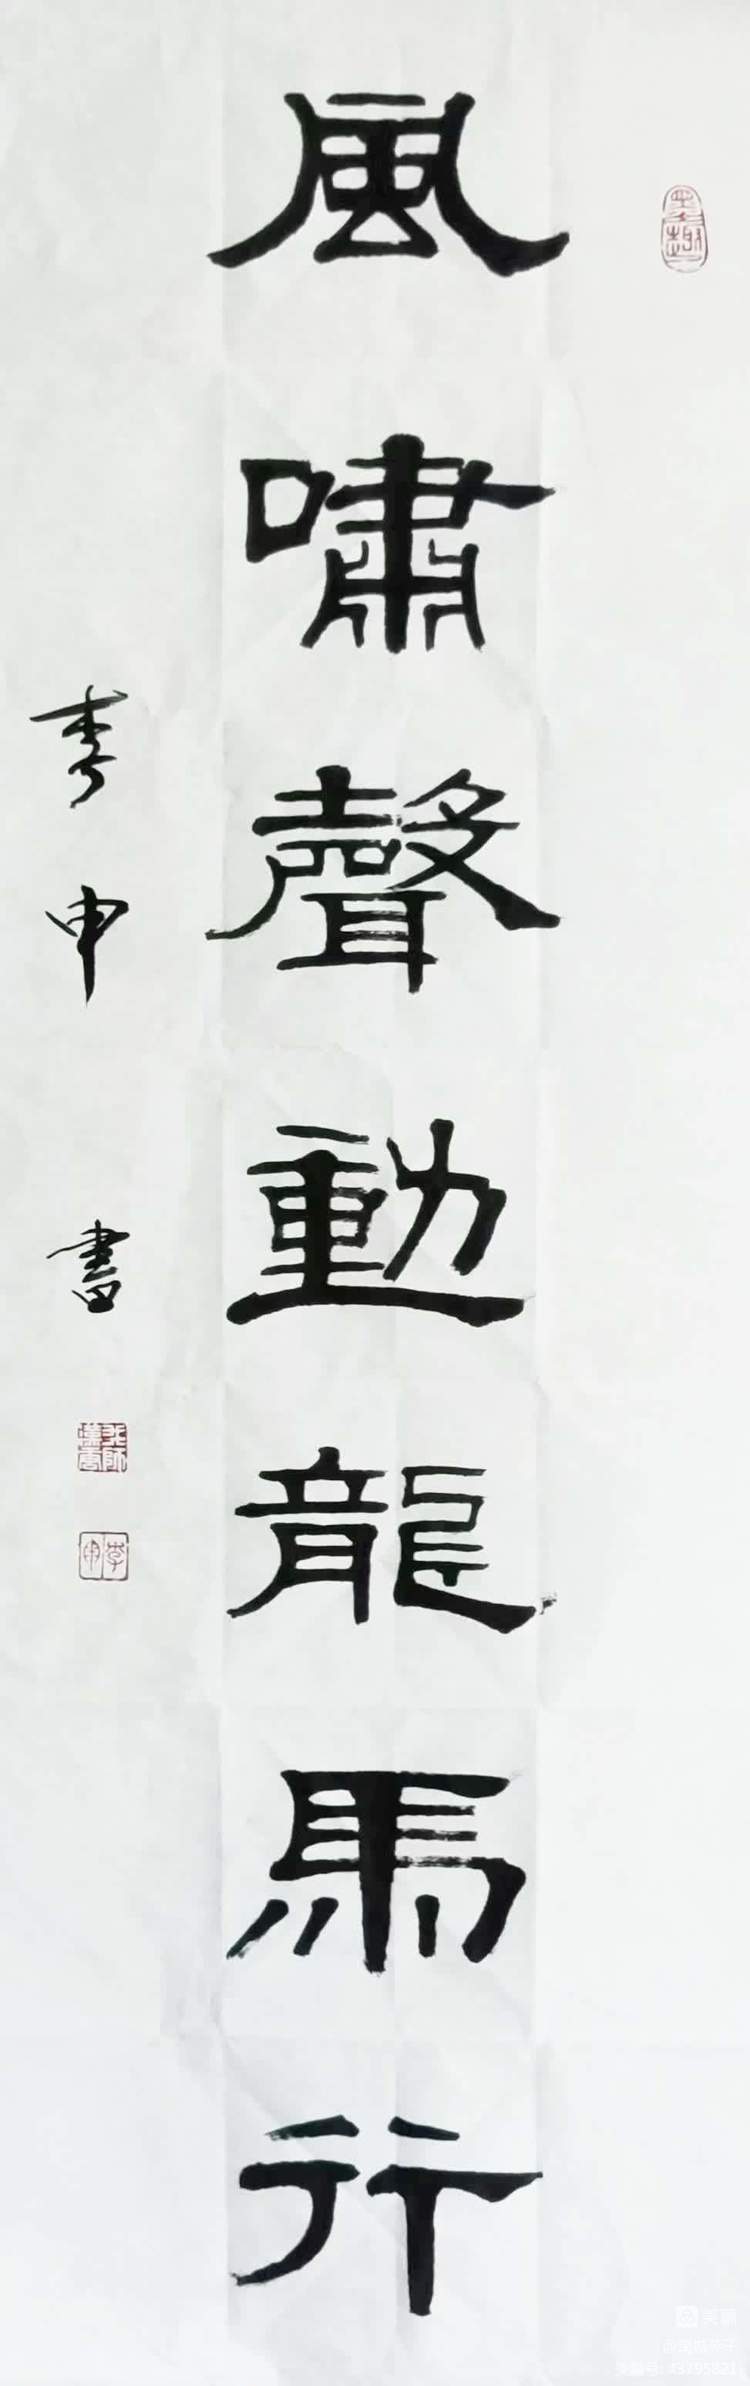 風嘯聲動龍馬行
李申 書
李申